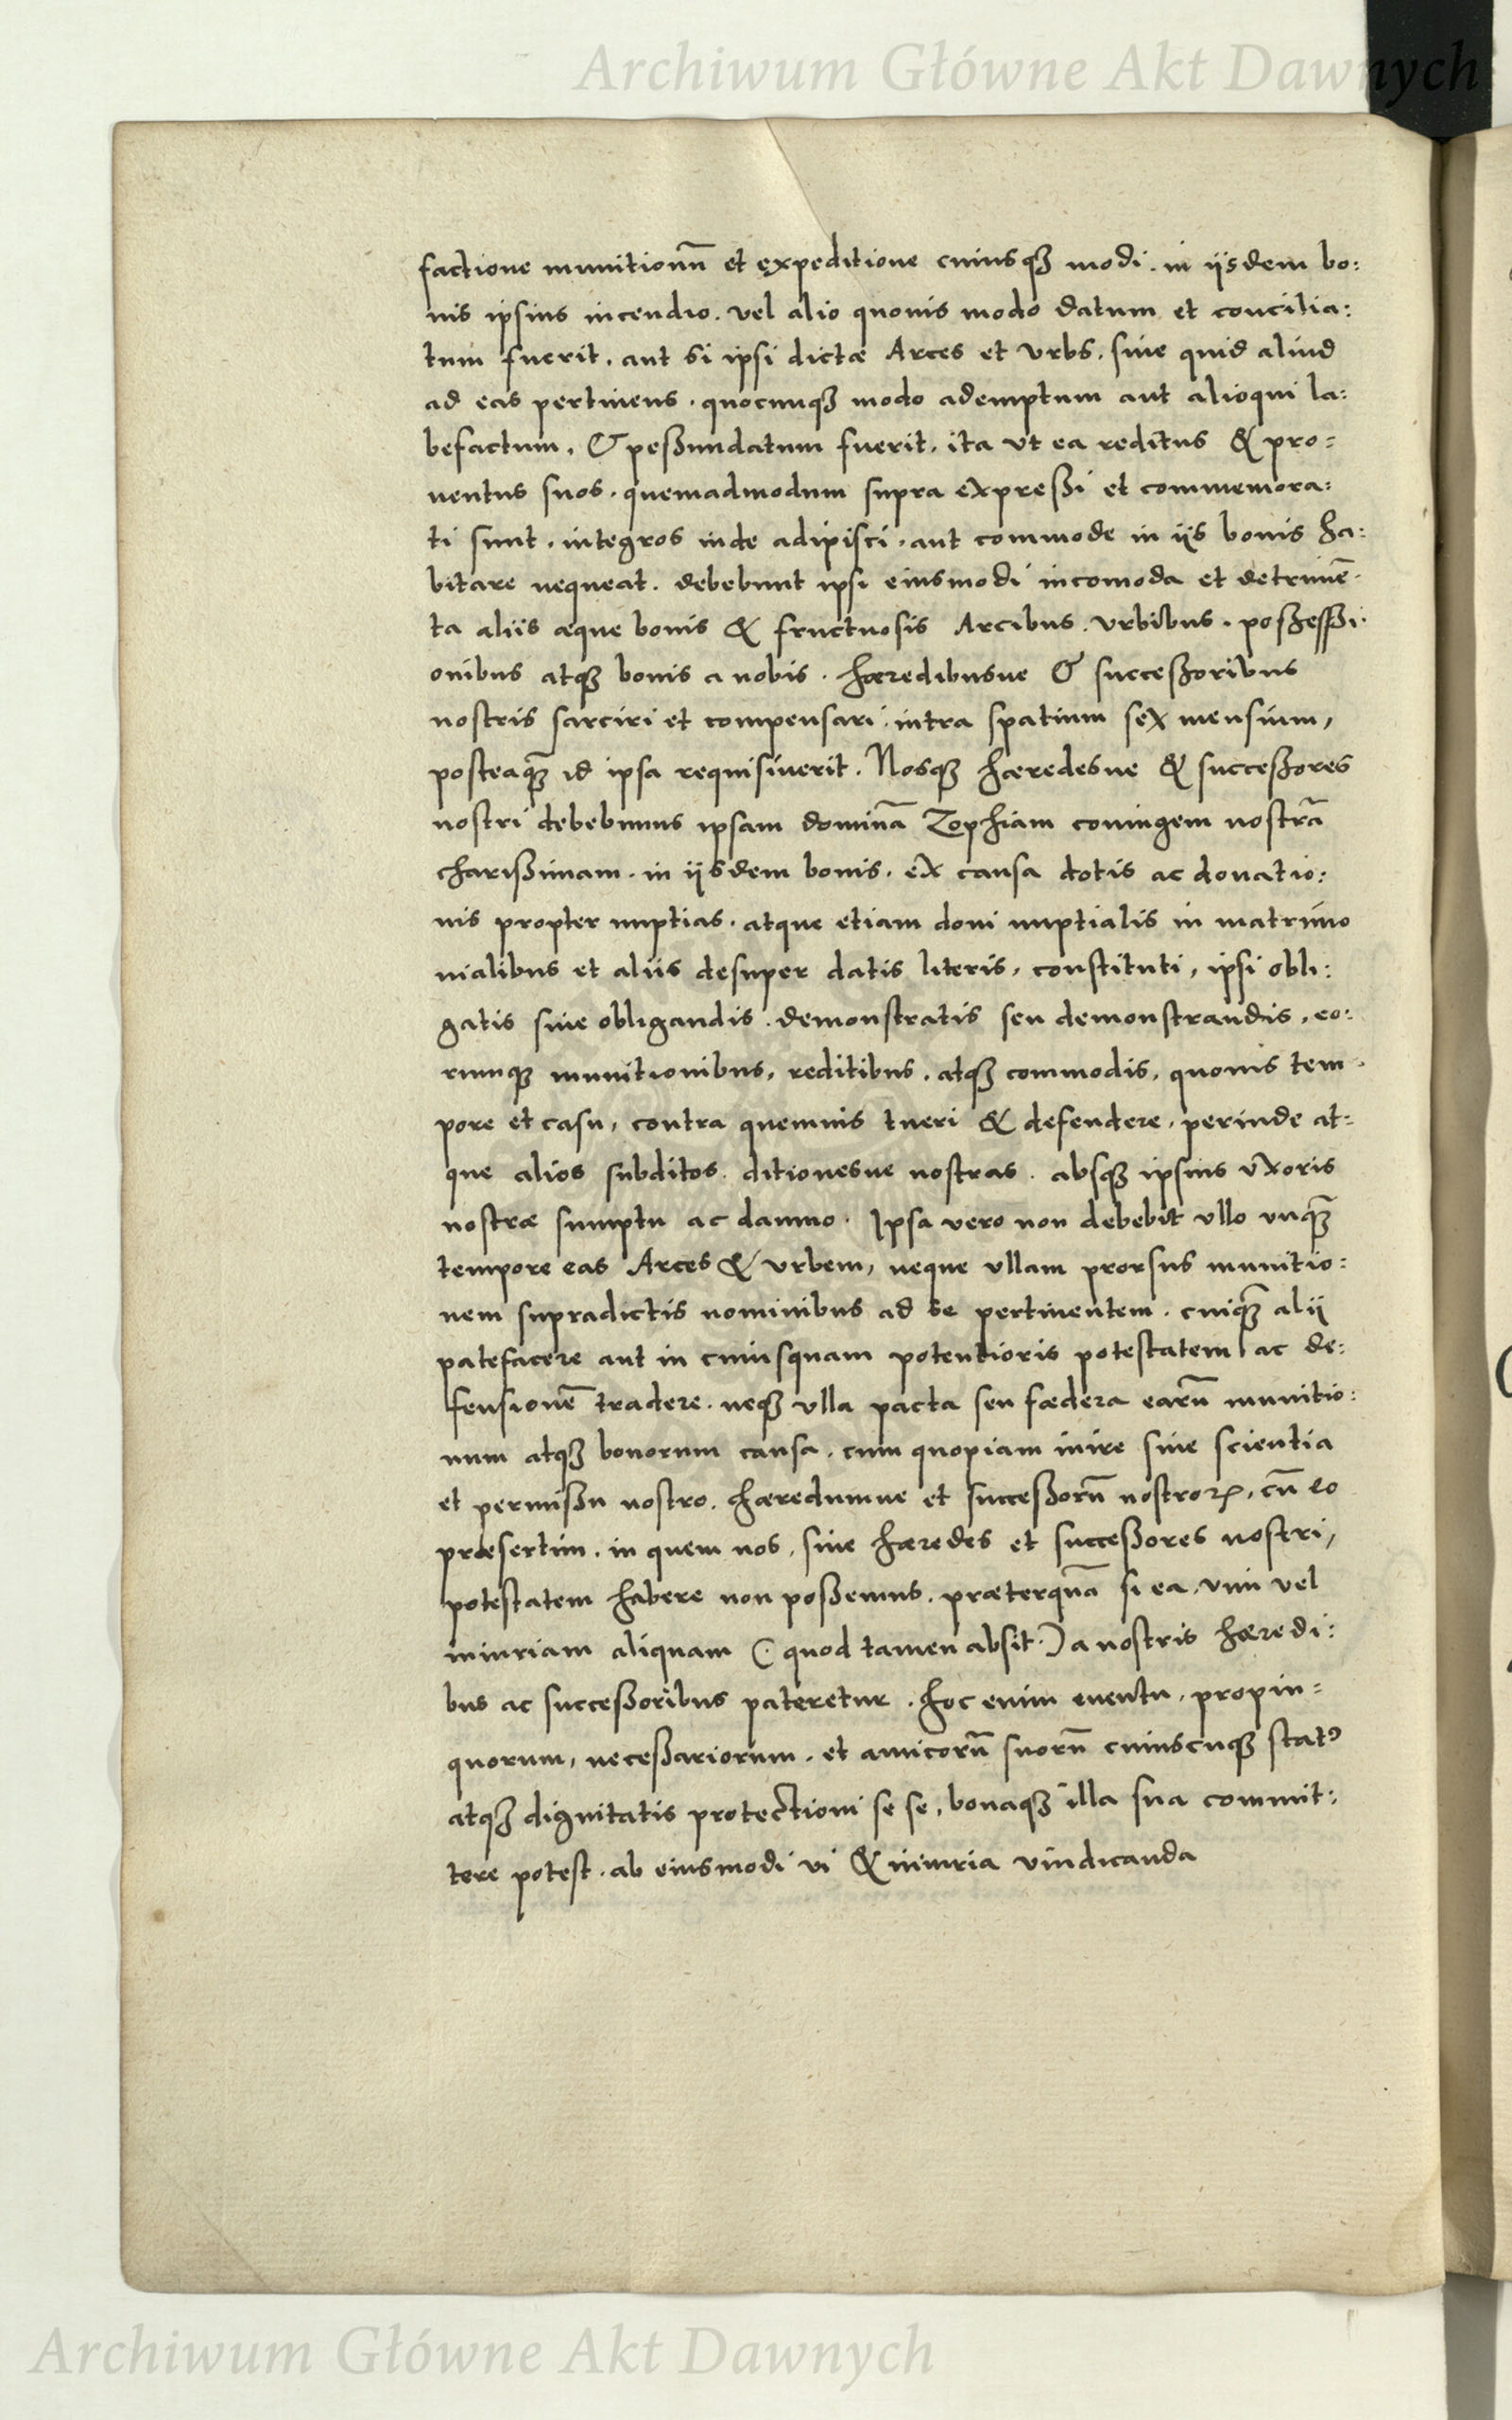 Archiwum Główne Akt Dawnych
factione munitionũ et expeditione cuiusqꝫ modi. in iisdem bo:
nis ipsius incendio. vel alio quouis modo datum et concilia:
tum fuerit. aut si ipsi dictæ Arces et vrbs. siue quid aliud
ad eas pertinens. quocunqꝫ modo ademptum aut alioqui la:
befactum, & peßundatum fuerit. ita vt ea reditus & pro=
uentus suos. quemadmodum supra expreßi et commemora:
ti sunt. integros inde adipisci. aut commode in iis bonis ha:
bitare nequeat. debebunt ipsi eiusmodi incomoda et detrimẽ-
ta aliis æque bonis & fructuosis Arcibus. vrbibus. poßeßi-
onibus atqꝫ bonis a nobis. hæredibusue & succeßoribus
nostris sarciri et compensari. intra spatium sex mensium,
posteaqꝫ̃ id ipsa requisiuerit. Nosqꝫ hæredesue & succeßores
nostri debebimus ipsam dominã Zophiam coniugem nostrã
charißimam. in iisdem bonis. ex causa dotis ac donatio:
nis propter nuptias. atque etiam doni nuptialis in matrimo
nialibus et aliis desuper datis literis, constituti, ipsi obli:
gatis siue obligandis. demonstratis seu demonstrandis. eo:
rumqꝫ munitionibus, reditibus. atqꝫ commodis, quouis tem-
pore et casu, contra quemuis tueri & defendere. perinde at=
que alios subditos. ditionesue nostras. absqꝫ ipsius vxoris
nostræ sumptu ac damno. Ipsa vero non debebit vllo vnqꝫ̃
tempore eas Arces & vrbem, neque vllam prorsus munitio:
nem supradictis nominibus ad se pertinentem. cuiqꝫ̃ alij
patefacere aut in cuiusquam potentioris potestatem ac de:
fensionẽ tradere. neqꝫ vlla pacta seu fœdera earũ munitio:
num atqꝫ bonorum causa. cum quopiam inire sine scientia
et permißu nostro. hæredumue et succeßorũ nostroꝝ, cũ eo
præsertim. in quem nos, siue hæredes et succeßores nostri,
potestatem habere non poßemus. præterquã si ea. vim vel
iniuriam aliquam (quod tamen absit.) a nostris hæredi:
bus ac succeßoribus pateretur. hoc enim euentu. propin=
quorum, neceßariorum. et amicorũ suorũ cuiuscuqꝫ statꝰ
atqꝫ dignitatis protectioni se se, bonaqꝫ illa sua commit:
tere potest. ab eiusmodi vi & iniuria vindicanda
Archiwum Główne Akt Dawnych